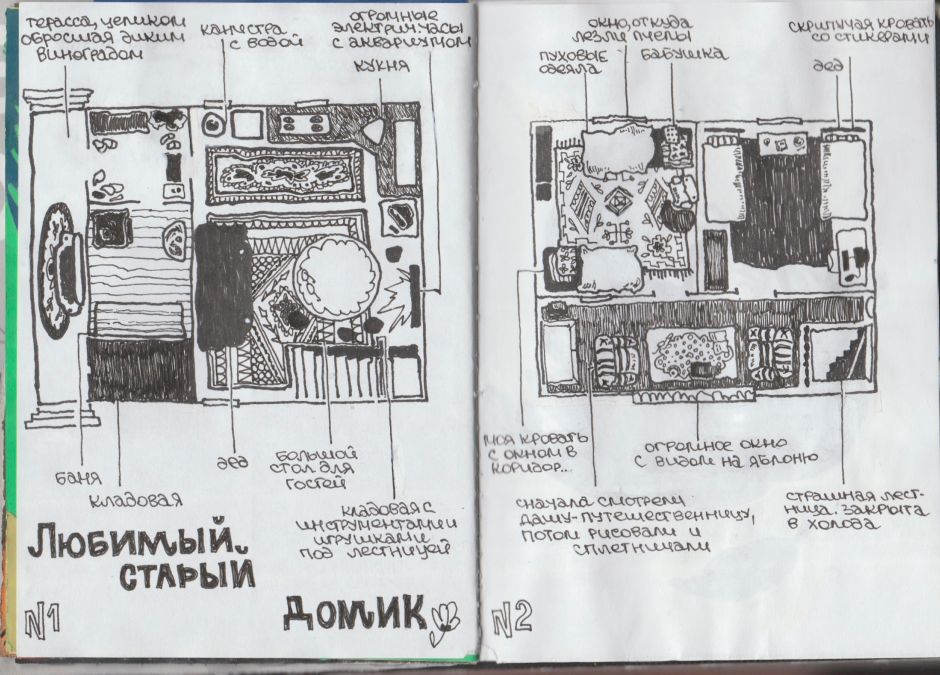 терасса, целиком
обросшая диким
виноградом
канистра
с водой
огромные
электрич. часы
с аквариумом
кухня
баня
кладовая
дед
большой
стол для
гостей
кладовая с
инструментами и
игрушками
под лестницей
Любимый
старый
домик
N1
окно, откуда
лезли пчелы
пуховые
одеяла
бабушка
скрипучая кровать
со стикерами
дед
моя кровать
с окном в
коридор...
огромное окно
с видом на яблоню
сначала смотрели
дашу-путешественницу,
потом рисовали и
сплетничали
страшная лест-
ница. закрыта
в холода
N2